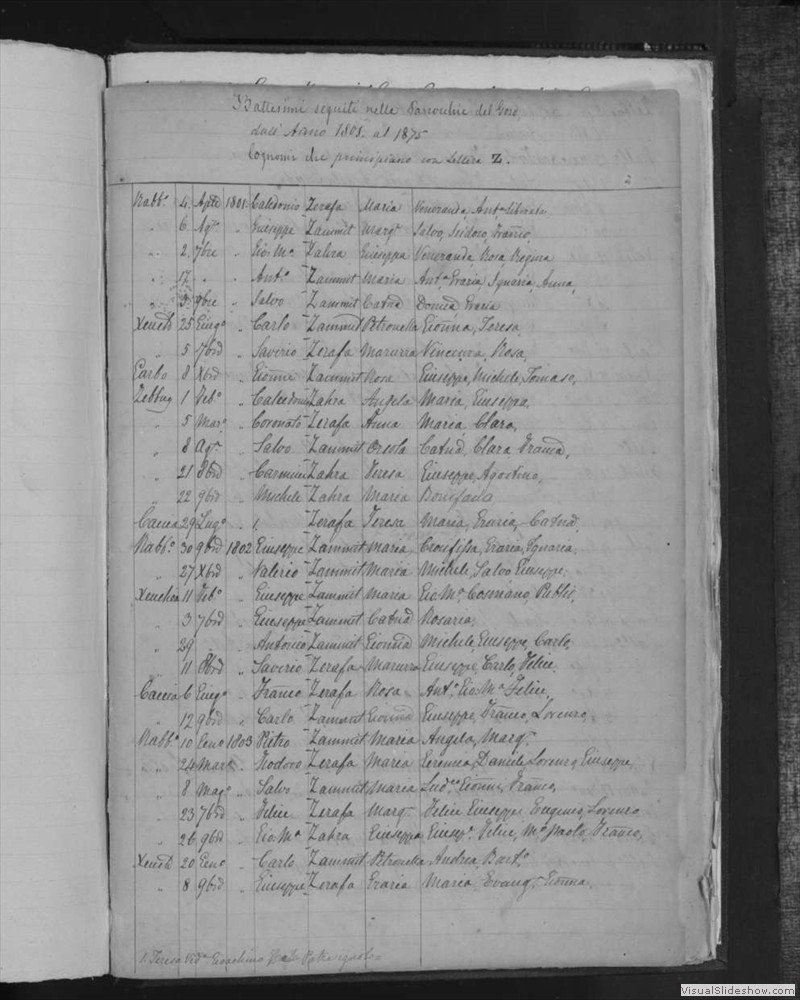 Battesimi seguiti nelle Parrochie del Gozo
dall' Anno 1801. al 1875
Cognomi che principiano con Lettera Z.
2
Rabb.o 4. Agto 1801. Calcedonio Zerafa Maria Veneranda, Ant.a Liberata
" 6. Ag.o " Giuseppe Zammit Marg.a Salvo, Isidoro, Franco,
" 2. 7bre " Gio: Ma. Zahra Giuseppa Veneranda Rosa Regina
" 17 " " Ant.o Zammit Maria Ant.a Grazia Ignazia, Anna,
" 3. 9bre " Salvo Zammit Catna Domca Grazia
Xeuch 25 Giug.o " Carlo Zammit Petronella Gionna, Teresa,
" 5 7bre " Saverio Zerafa Maruzza Vincenza, Rosa,
Garbo 8 Xbre " Gionne Zammit Rosa Giuseppe, Michele, Tomaso,
Zebbug 1 Feb.o " Calcedonio Zahra Angela Maria, Giuseppa,
" 5 Mar.o " Coronato Zerafa Anna Maria Clara,
" 8 Ag.o " Salvo Zammit Orsola Catna, Clara Franca,
" 21 8bre " Carmine Zahra Teresa Giuseppe, Agostino,
" 22 9bre " Michele Zahra Maria Bonifacia
Caccia 29 Lug.o " 1, Zerafa Teresa Maria, Grazia, Catna
Rabb.o 30 9bre 1802 Giuseppe Zammit Maria Crocifissa, Grazia, Ignazia,
" 27 Xbre " Valerio Zammit Maria Michele, Salvo Giuseppe,
Xeuchia 11 Feb.o " Giuseppe Zammit Maria Gio: Ma. Publi,
" 3 7bre " Giuseppe Zammit Catna Rosaria,
" 29 " " Antonio Zammit Gionna Michele, Giuseppe, Carlo,
" 11 8bre " Saverio Zerafa Maruzza Giuseppe, Carlo, Felice,
Caccia 6 Giug.o " Franco Zerafa Rosa Ant.o Gio: Ma. Felice,
" 12 9bre " Carlo Zammit Gionna Giuseppe, Franco, Lorenzo,
Rabb.o 10 Geno 1803 Pietro Zammit Maria Angela, Marg.a
" 24 Mar.o " Teodoro Zerafa Maria Geremia, Daniele, Lorenzo, Giuseppe,
" 8 Mag.o " Salvo Zammit Maria Lud.co Gionne, Franco,
" 23 7bre " Felice Zerafa Marg.a Felice Giuseppe Eugenio, Lorenzo
" 26 9bre " Gio: Ma. Zahra Giuseppa Giusep.e Felice, Ma. Paolo, Franco,
Xeuch 20 Geno " Carlo Zammit Petronella Andrea Bart.o
" 8 9bre " Giuseppe Zerafa Grazia Maria, Evang.a Gionna,
1. Teresa Ved.a Gioachino
VisualSlideshow.com